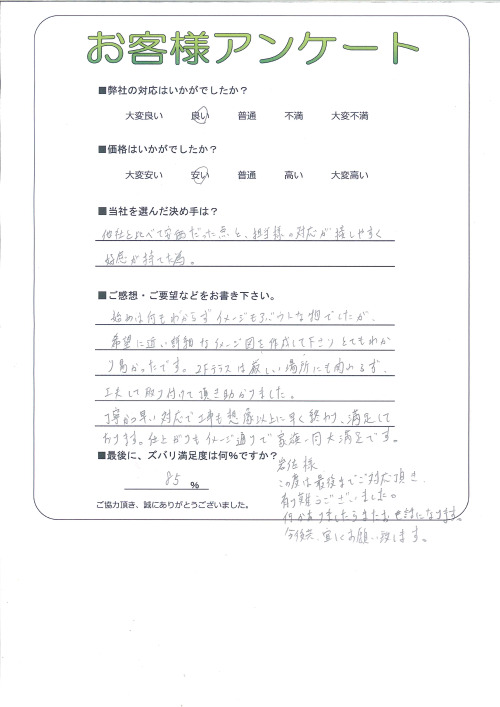 お客様アンケート
■弊社の対応はいかがでしたか？
大変良い 良い 普通 不満 大変不満
■価格はいかがでしたか？
大変安い 安い 普通 高い 大変高い
■当社を選んだ決め手は？
他社と比べて安価だった点と、担当様の対応が接しやすく
好感が持てた為。
■ご感想・ご要望などをお書き下さい。
始めは何もわからずイメージもあやふやな物でしたが、
希望に近い詳細なイメージ図を作成して下さりとてもわか
り易かったです。2Fテラスは厳しい場所にも関わらず、
工夫して取り付けて頂き助かりました。
丁寧かつ早い対応で工事も想像以上に早く終わり、満足して
おります。仕上がりもイメージ通りで家族一同大満足です。
■最後に、ズバリ満足度は何％ですか？
85 ％
ご協力頂き、誠にありがとうございました。
様
この度は最後までご対応頂き
有り難うございました。
何かありましたらまたお世話になります。
今後共、宜しくお願い致します。